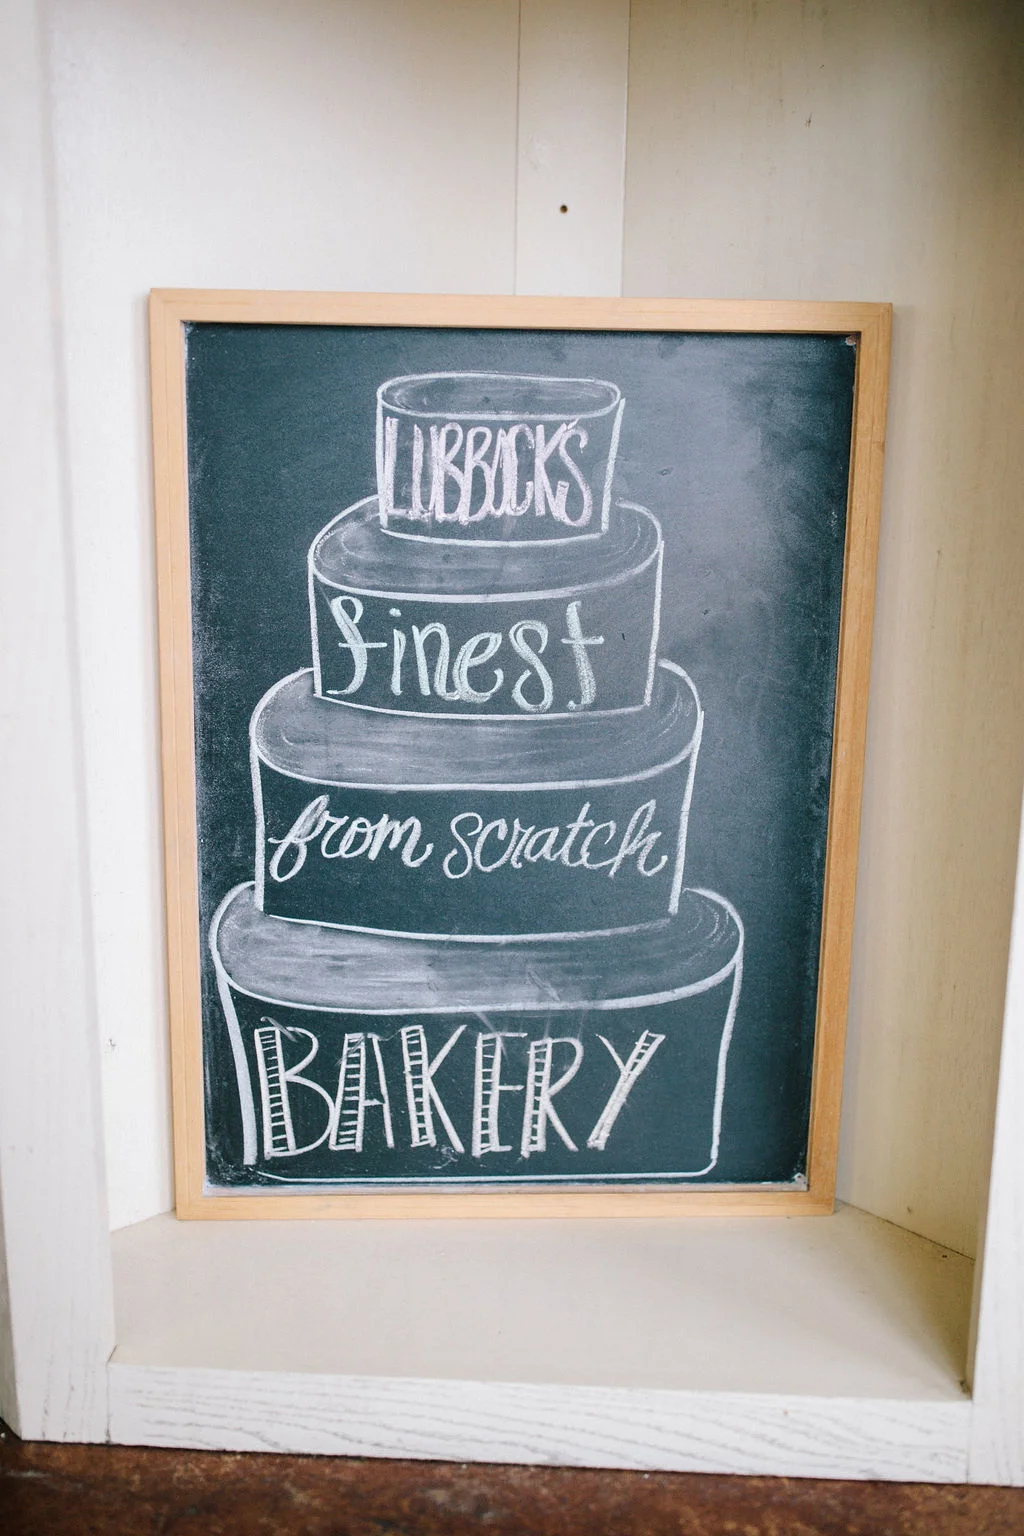 LUBBOCKS
finest
from scratch
BAKERY